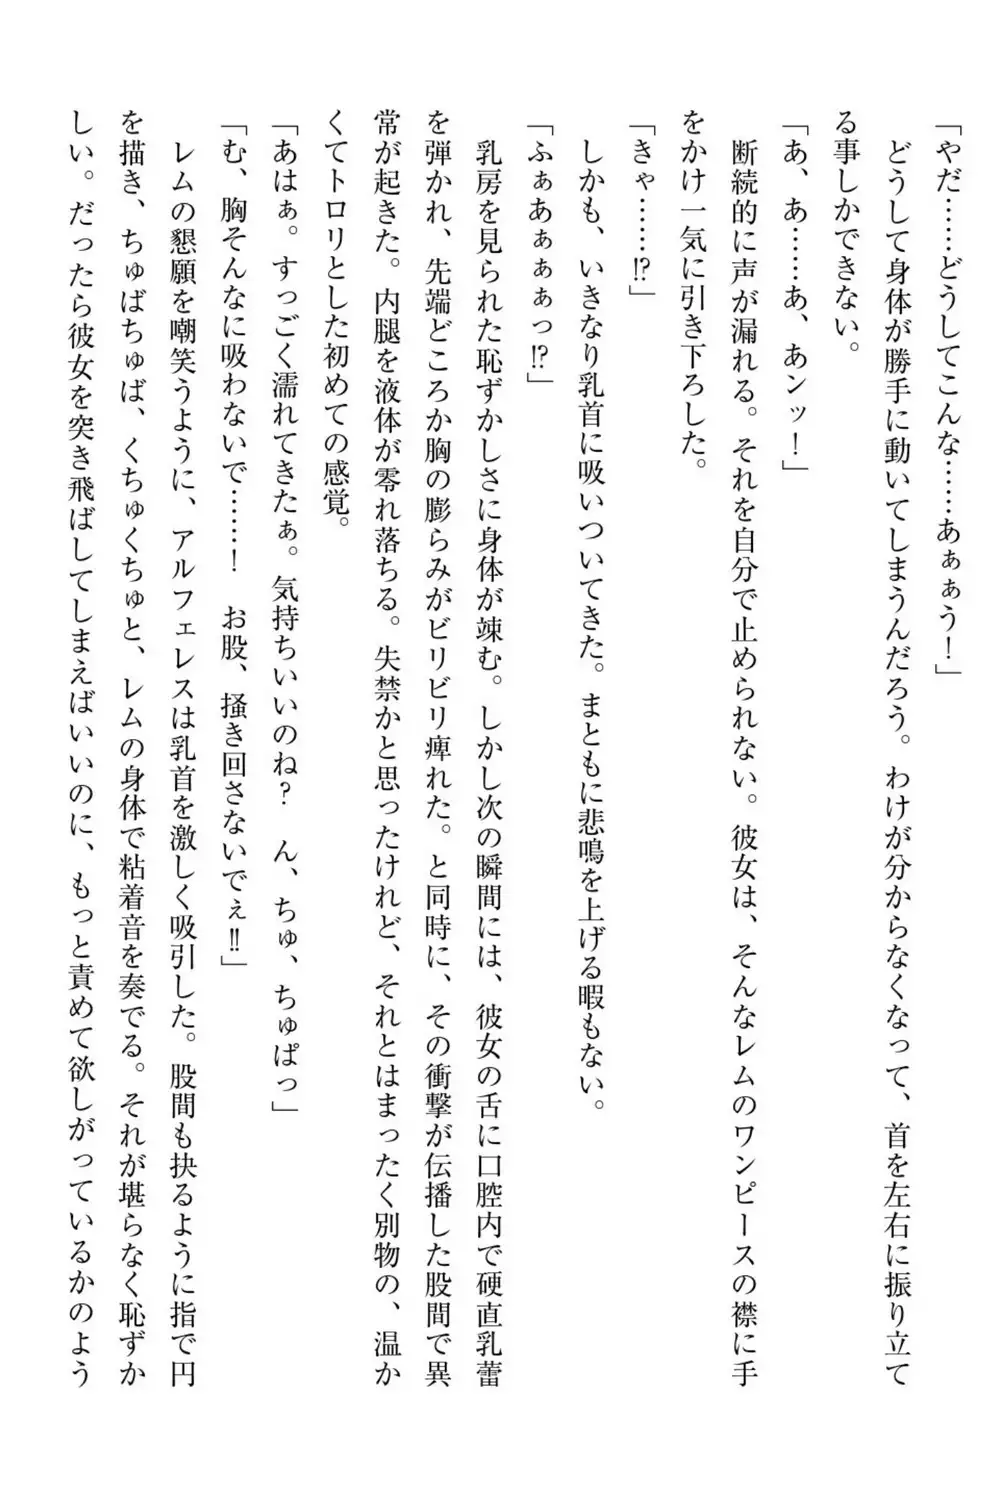 「やだ……どうしてこんな……あぁぁう！」
どうして身体が勝手に動いてしまうんだろう。わけが分からなくなって、首を左右に振り立て
る事しかできない。
「あ、あ……あ、あンッ！」
断続的に声が漏れる。それを自分で止められない。彼女は、そんなレムのワンピースの襟に手
をかけ一気に引き下ろした。
「きゃ……⁉」
しかも、いきなり乳首に吸いついてきた。まともに悲鳴を上げる暇もない。
「ふぁあぁぁぁっ⁉」
乳房を見られた恥ずかしさに身体が竦む。しかし次の瞬間には、彼女の舌に口腔内で硬直乳蕾
を弾かれ、先端どころか胸の膨らみがビリビリ痺れた。と同時に、その衝撃が伝播した股間で異
常が起きた。内腿を液体が零れ落ちる。失禁かと思ったけれど、それとはまったく別物の、温か
くてトロリとした初めての感覚。
「あはぁ。すっごく濡れてきたぁ。気持ちいいのね？　ん、ちゅ、ちゅぱっ」
「む、胸そんなに吸わないで……！　お股、掻き回さないでぇ‼」
レムの懇願を嘲笑うように、アルフェレスは乳首を激しく吸引した。股間も抉るように指で円
を描き、ちゅばちゅば、くちゅくちゅと、レムの身体で粘着音を奏でる。それが堪らなく恥ずか
しい。だったら彼女を突き飛ばしてしまえばいいのに、もっと責めて欲しがっているかのよう